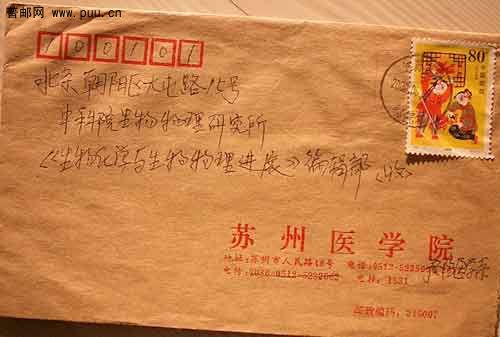 普邮网 www.puu.cn
100101
北京朝阳区大屯路15号
中科院生物物理研究所
《生物化学与生物物理进展》编辑部 (收)
80
苏州医学院
地址:苏州市人民路48号 电话:0512-5225
电传:0086-0512-5232662 电挂:1531
邮政编码:215007